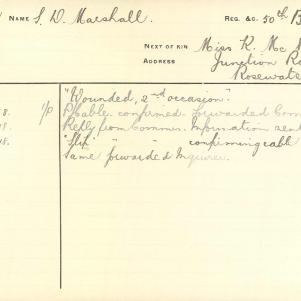 NAME S. D. Marshall. REG. &c. 50th B
NEXT OF KIN Miss K. Mc
ADDRESS Junction Ro
Rosewate
"Wounded, 2nd occasion."
8. 1/P cable confirmed. Forwarded Com
Reply from commns. Information sent
18. "Slip" " " confirming cable
Same forwarded Inquirer.